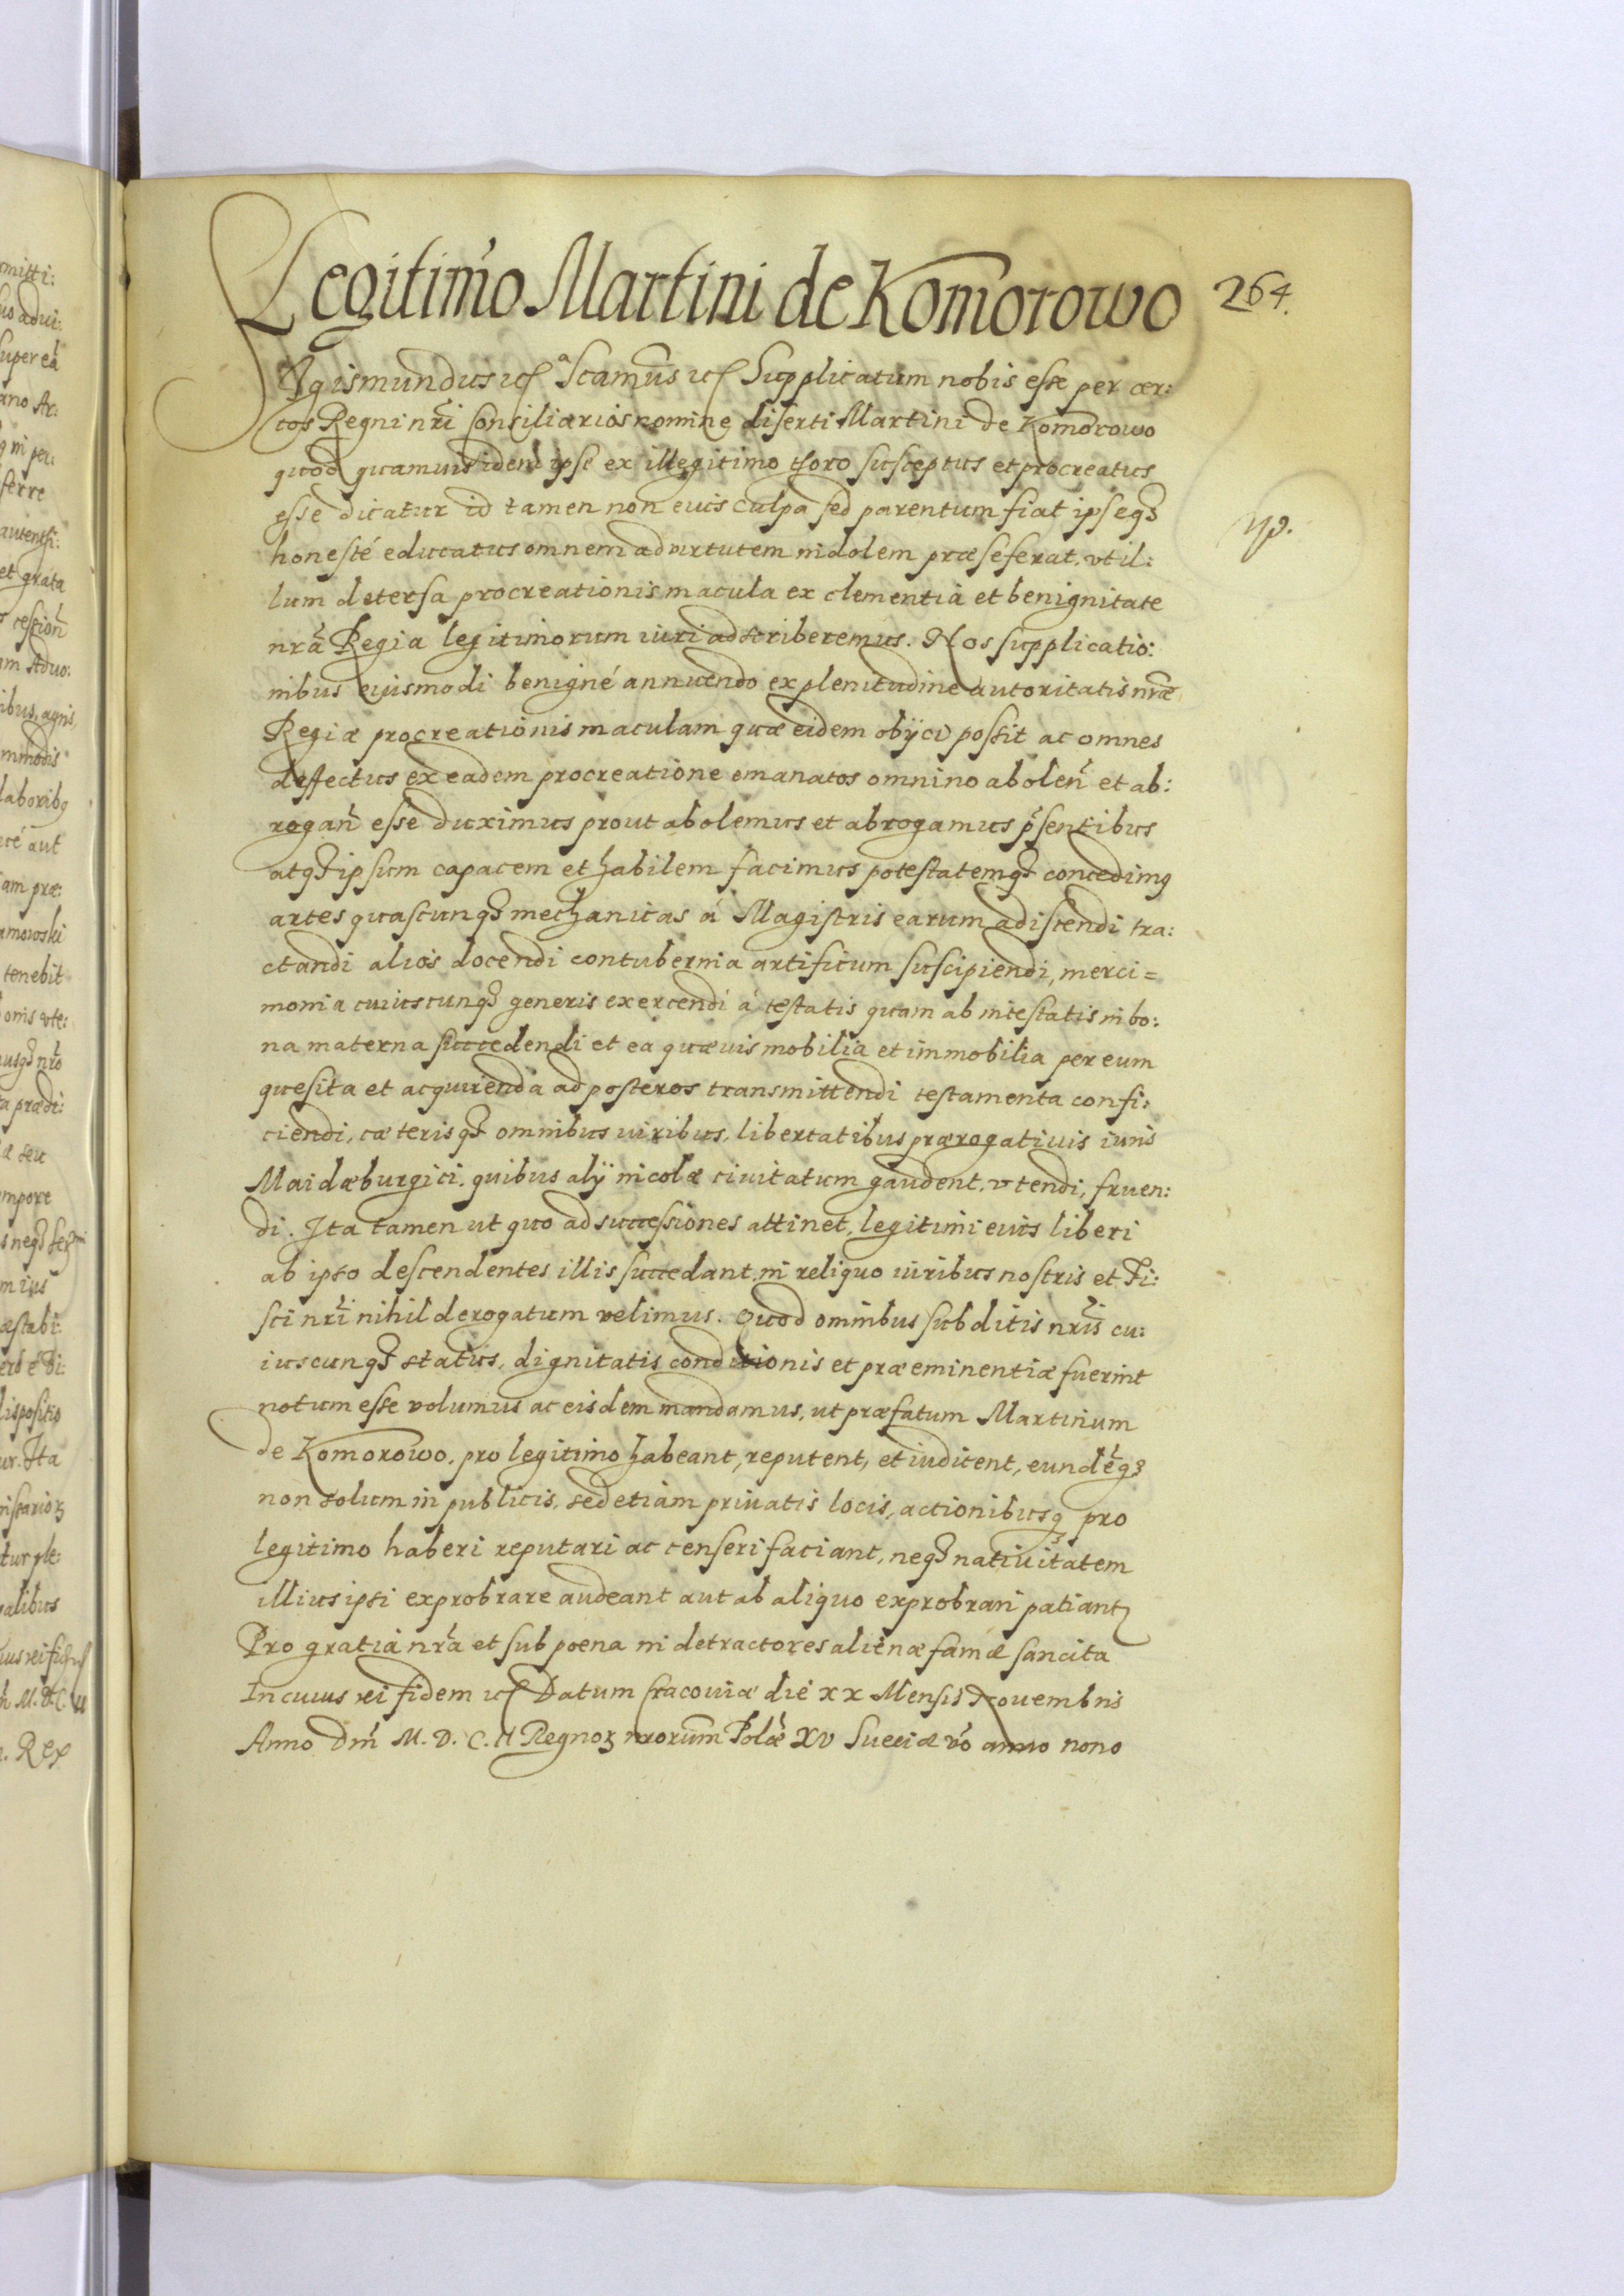 Legitimo Martini de Komorowo
264.
Sigismundus etc. Scamus etc. Supplicatum nobis esse per cer:
tos Regni nri Consiliarios nomine diserti Martini de Komorowo
quod quamuis idem ipse ex illegitimo thoro susceptus et procreatus
esse dicatur id tamen non eius culpa sed parentum fiat ipseqз
honesté educatus omnem ad virtutem indolem præ se ferat, vt il:
lum detersa procreationis macula ex clementia et benignitate
nra Regia legitimorum iuri adscriberemus. Nos supplicatio:
nibus eiusmodi benigné annuendo ex plenitudine autoritatis nræ
Regiæ procreationis maculam quæ eidem obijci possit ac omnes
deffectus ex eadem procreatione emanatos omnino abolen et ab:
rogan esse duximus prout abolemus et abrogamus psentibus
atqз ipsum capacem et habilem facimus potestatemqз concedimq
artes quascunqз mechanicas á Magistris earum adiscendi tra:
ctandi alios docendi contubernia artificum suscipiendi, merci=
monia cuiuscunqз generis exercendi á testatis quam ab intestatis in bo:
na materna succedendi et ea quævis mobilia et immobilia per eum
quesita et acquirenda ad posteros transmittendi testamenta confi:
ciendi, cæterisqз omnibus iuribus, libertatibus prærogatiuis iuris
Maidæburgici, quibus alij incolæ ciuitatum gaudent, vtendi, fruen:
di. Ita tamen ut quo ad successiones attinet, legitimi eius liberi
ab ipso descendentes illis succedant, in reliquo iuribus nostris et Fi:
sci nri nihil derogatum velimus. Quod omnibus subditis nris cu:
iuscunqз status, dignitatis conditionis et præeminentiæ fuerint
notum esse volumus ac eisdem mandamus, ut præfatum Martinum
de Komorowo, pro legitimo habeant, reputent, et iudicent, eundeqз
non solum in publicis, sed etiam priuatis locis, actionibusqз pro
legitimo haberi reputari ac censeri faciant, neqз natiuitatem
illius ipsi exprobrare audeant aut ab aliquo exprobrari patiant
Pro gratia nra et sub poena in detractores alienæ famæ sancita
In cuius rei fidem etc. Datum Cracouiæ die xx Mensis Nouembris
Anno Dni M. D. C. II Regnoз nrorum Polæ XV Sueciæ vo anno nono